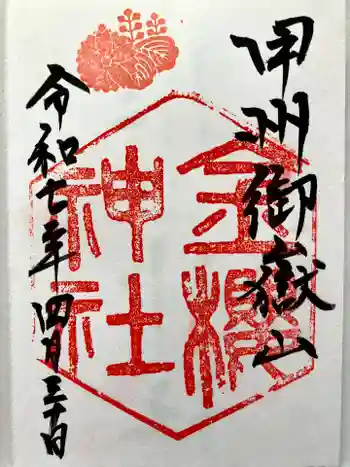 甲州御嶽山
金櫻神社
令和七年四月三十日